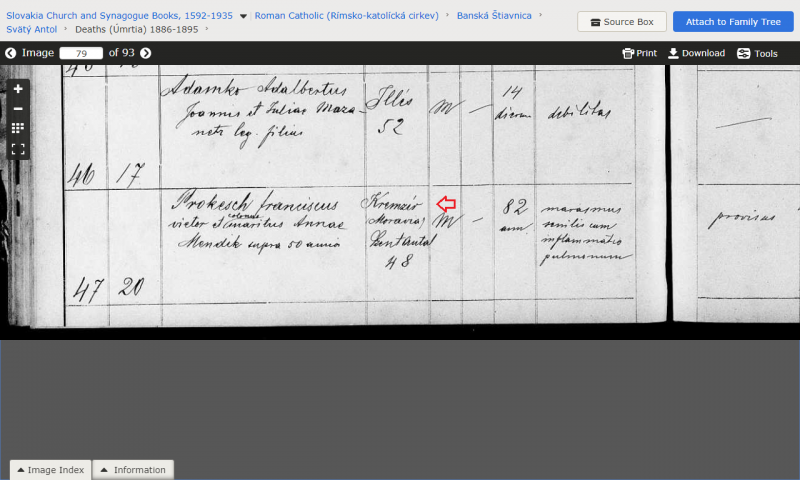 Slovakia Church and Synagogue Books, 1592-1935 Roman Catholic (Rímsko-katolícká cirkev) Banská Štiavnica
Svätý Antol Deaths (Úmrtia) 1886-1895
Source Box
Attach to Family Tree
Image 79 of 93
Print Download Tools
Adamko Adalbertus
Joannis et Juliae Maza-
neti leg. filius
Illés
52
M —
14
dierum
debilitas
46 17
Prokesch franciscus
victor et colonus maritus Annae
Mendik supra 50 annis
Kremzír
Moravia
Szentantal
48
M —
82
ann.
marasmus
senilis cum
inflammatio
pulmonum
provisus
47 20
Image Index
Information